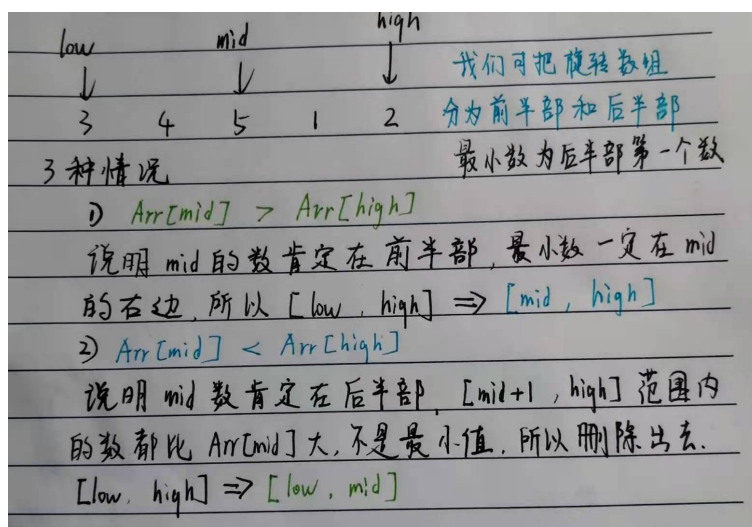 low mid high
3 4 5 1 2
我们可把旋转数组
分为前半部和后半部
最小数为后半部第一个数
3种情况
1) Arr[mid] > Arr[high]
说明 mid 的数肯定在前半部,最小数一定在 mid
的右边,所以 [low, high] ⇒ [mid, high]
2) Arr[mid] < Arr[high]
说明 mid 数肯定在后半部, [mid+1, high] 范围内
的数都比 Arr[mid] 大,不是最小值,所以删除出去.
[low, high] ⇒ [low, mid]